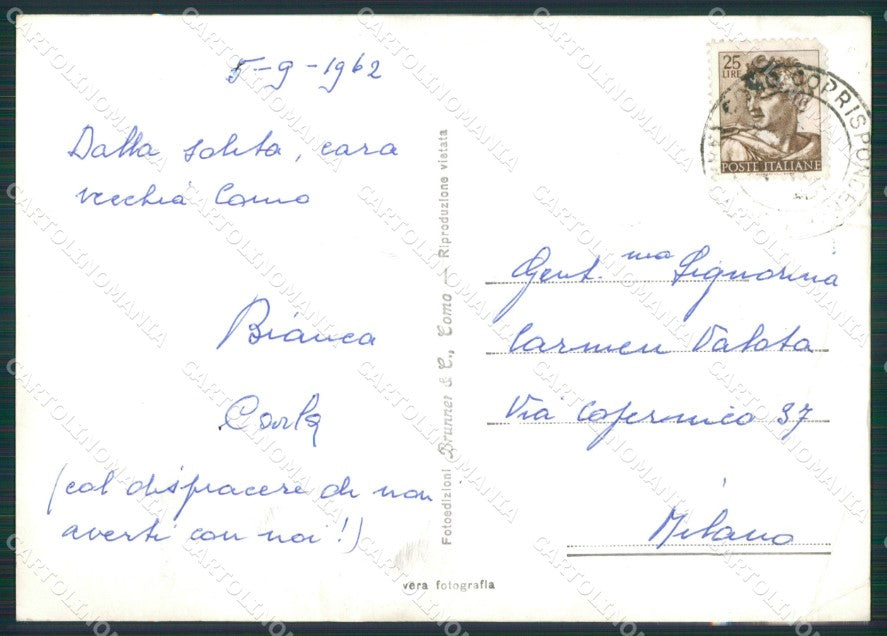 5-9-1962
Dalla solita, cara
vecchia Como
Bianca
Carla
(col dispiacere di non
averti con noi!)
Fotoedizioni Brunner & C., Como — Riproduzione vietata
vera fotografia
25
LIRE
POSTE ITALIANE
CORRISPONDE
Gent.ma Signorina
Carmen Valota
Via Copernico 37
Milano
CARTOLINOMANIA